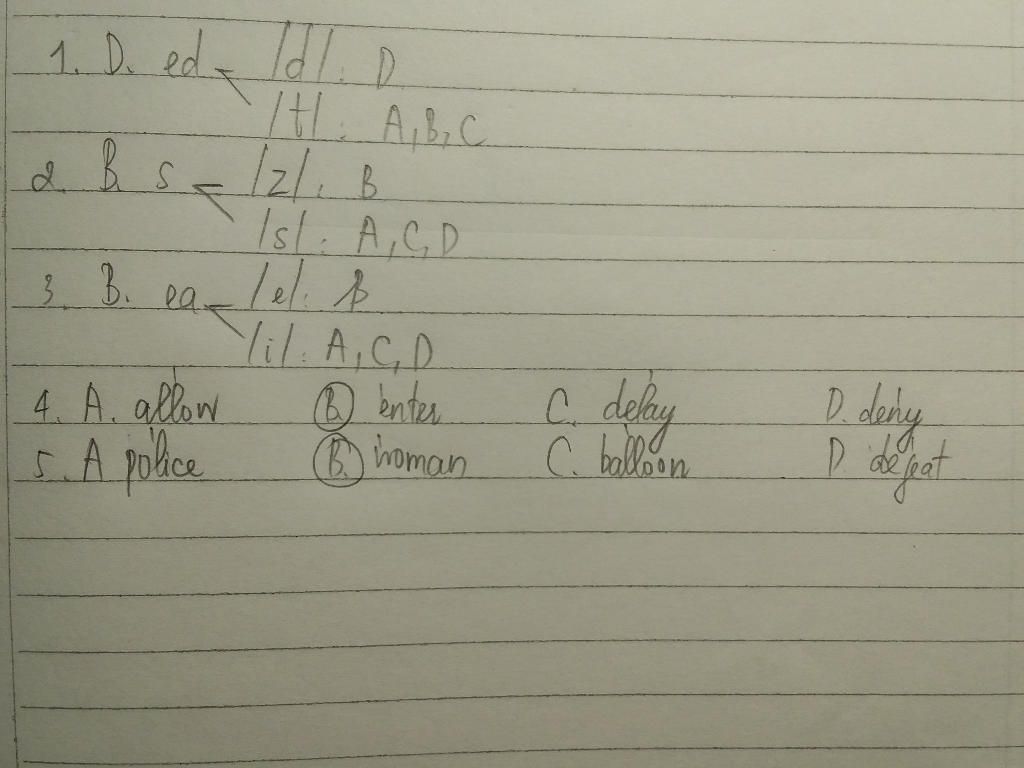 1. D. ed /d/: D
/t/: A, B, C
2. B s /z/: B
/s/: A, C, D
3. B. ea /e/: B
/i/: A, C, D
4. A. al'low B. 'enter C. de'lay D. de'ny
5. A po'lice B. 'woman C. ba'lloon D. de'feat